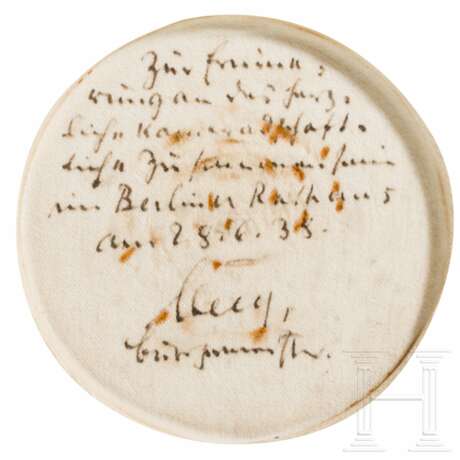 Zur Erinne-
rung an das herz-
liche kameradschaft-
liche Zusammensein
im Berliner Rathaus
am 28.6.35.
Bürgermeister.